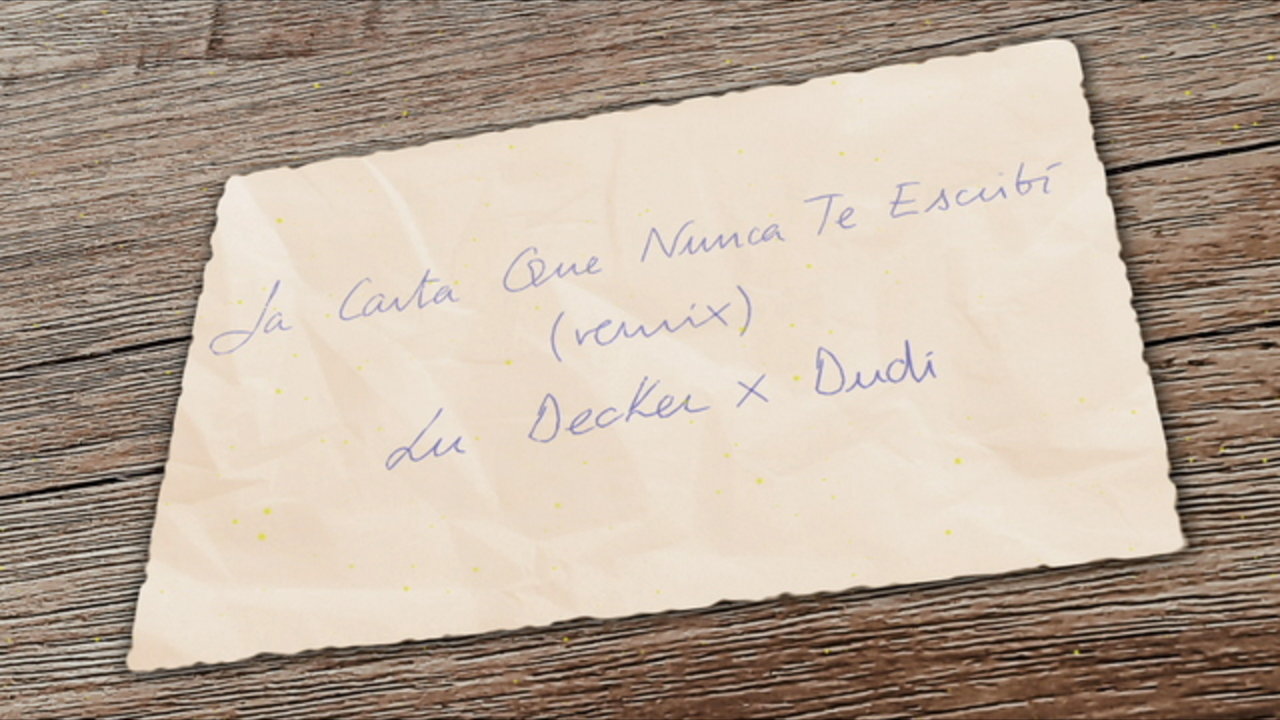 La Carta Que Nunca Te Escribí
(remix)
Lu Decker x Dudi